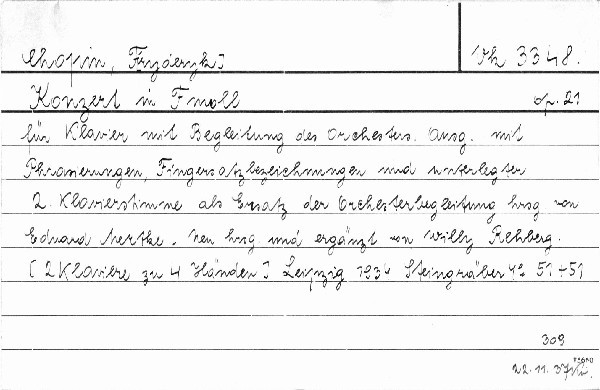 Chopin, Fryderyk] Vk 3348.
Konzert in F moll op. 21
für Klavier mit Begleitung des Orchesters. Ausg. mit
Phrasierungen, Fingersatzbezeichnungen und unterlegter
2. Klavierstimme als Ersatz der Orchesterbegleitung hrsg von
Eduard Mertke. Neu hrsg und ergänzt von Willy Rehberg.
[2 Klaviere zu 4 Händen] Leipzig 1934 Steingräber 4° 51+51
309
22.11.37